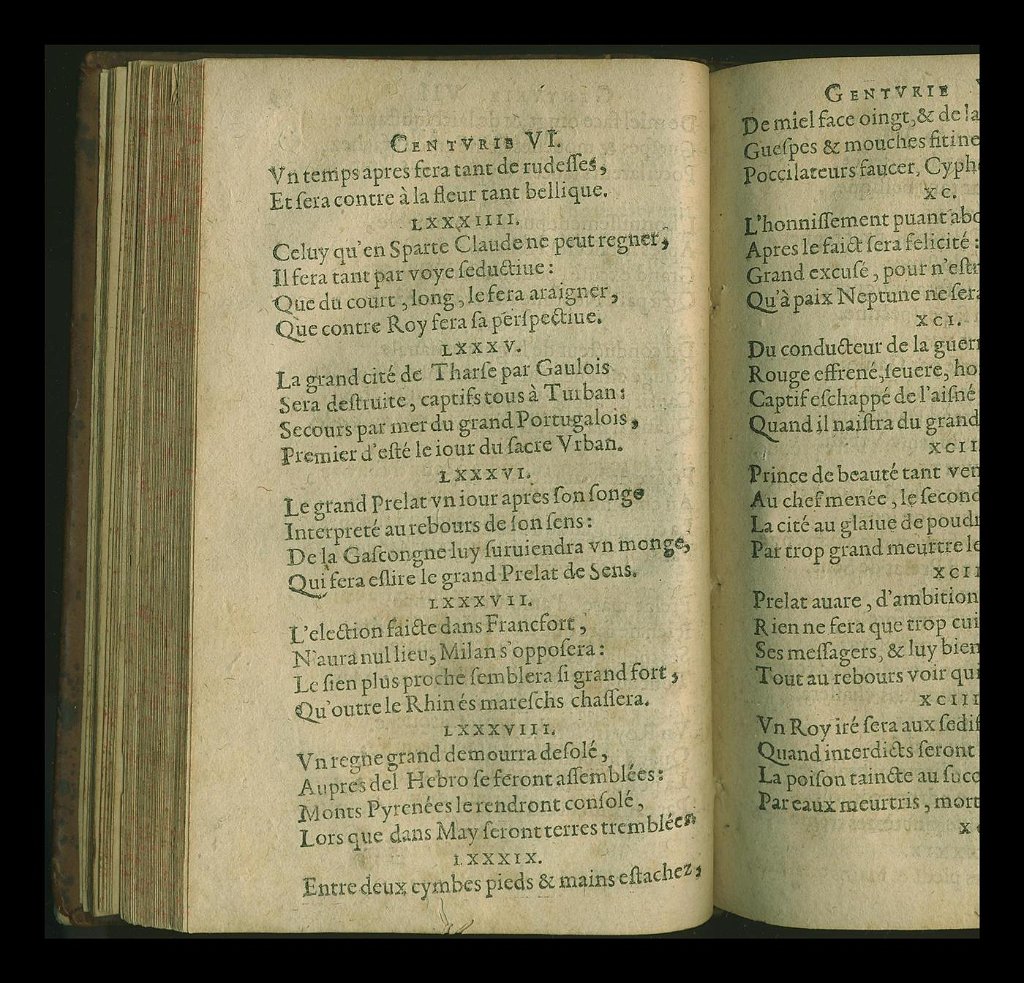 CENTVRIE VI.
Vn temps apres fera tant de rudeſſes,
Et ſera contre à la fleur tant bellique.
LXXXIIII.
Celuy qu'en Sparte Claude ne peut regner,
Il fera tant par voye ſeductiue:
Que du court, long, le fera araigner,
Que contre Roy fera ſa perſpectiue.
LXXXV.
La grand cité de Tharſe par Gaulois
Sera deſtruite, captifs tous à Turban:
Secours par mer du grand Portugalois,
Premier d'eſté le iour du ſacre Vrban.
LXXXVI.
Le grand Prelat vn iour apres ſon ſonge
Interpreté au rebours de ſon ſens:
De la Gaſcongne luy ſuruiendra vn monge,
Qui fera eſlire le grand Prelat de Sens.
LXXXVII.
L'election faicte dans Francfort,
N'aura nul lieu, Milan s'oppoſera:
Le ſien plus proche ſemblera ſi grand fort,
Qu'outre le Rhin és mareſchs chaſſera.
LXXXVIII.
Vn regne grand demourra deſolé,
Aupres del Hebro ſe feront aſſemblées:
Monts Pyrenées le rendront conſolé,
Lors que dans May ſeront terres tremblées.
LXXXIX.
Entre deux cymbes pieds & mains eſtachez,
GENTVRIE
De miel face oingt, & de la
Gueſpes & mouches fitine
Poccilateurs faucer, Cyph
XC.
L'honniſſement puant abo
Apres le faict ſera felicité:
Grand excuſé, pour n'eſtr
Qu'à paix Neptune ne ſera
XCI.
Du conducteur de la guerr
Rouge effrené, ſeuere, ho
Captif eſchappé de l'aiſné
Quand il naiſtra du grand
XCII
Prince de beauté tant ven
Au chef menée, le ſecond
La cité au glaiue de poudr
Par trop grand meurtre le
XCII
Prelat auare, d'ambition
Rien ne fera que trop cui
Ses meſſagers, & luy bien
Tout au rebours voir qui
XCIII
Vn Roy iré ſera aux ſediſ
Quand interdicts ſeront
La poiſon taincte au ſucc
Par eaux meurtris, mort
X